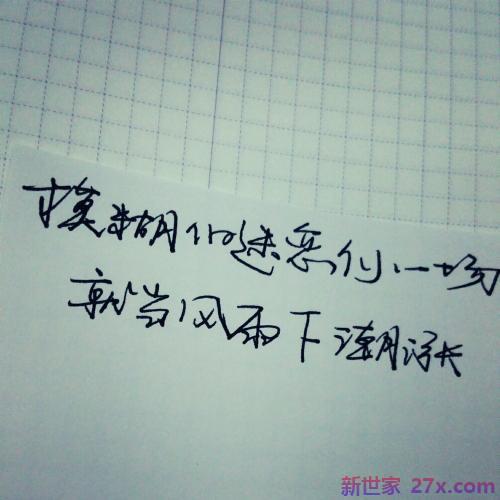 模糊的迷恋你一场
就当风雨下潮涨
新世家 27x.com